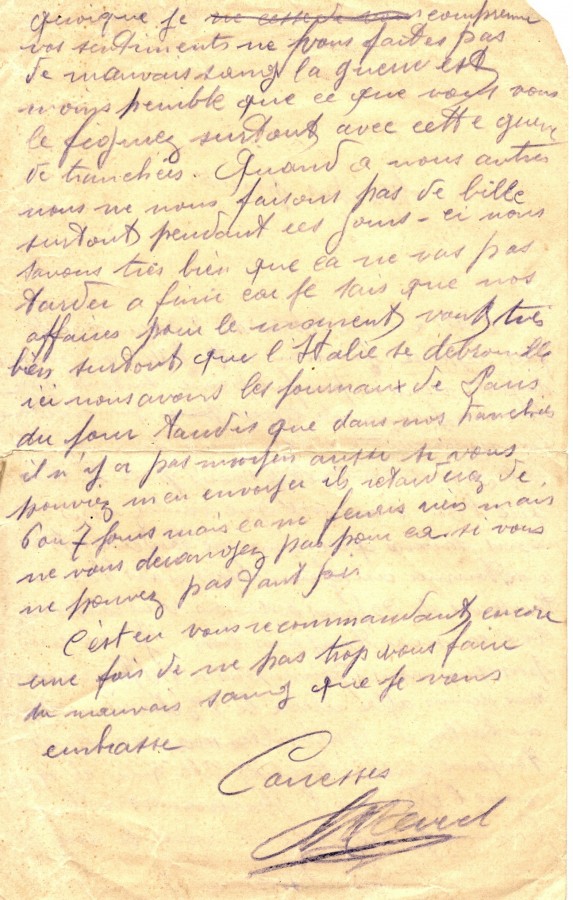 quoique je ne cesse de vous comprenne
vos sentiments ne vous faites pas
de mauvais sang la guerre est
moins penible que ce que vous vous
le figurez surtout avec cette guerre
de tranchées. Quand a nous autres
nous ne nous faisons pas de bille
surtout pendant ces jours-ci nous
savons très bien que ca ne vas pas
tarder a finir car je sais que nos
affaires pour le moment vont très
bien surtout que l'Italie se debrouille
ici nous avons les journaux de Paris
du jour tandis que dans nos tranchées
il n'y a pas moyen aussi si vous
pouviez m'en envoyer ils retarderez de
6 ou 7 jours mais ca ne ferais rien mais
ne vous derangez pas pour ca si vous
ne pouvez pas tant pis
C'est en vous recommandant encore
une fois de ne pas trop vous faire
du mauvais sang que je vous
embrasse
Caresses